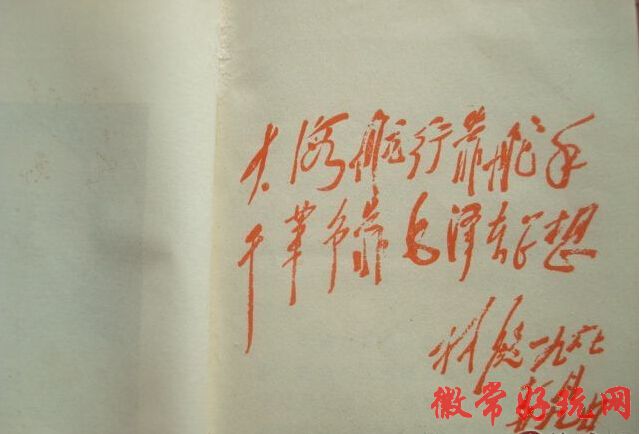 大海航行靠舵手
干革命靠毛泽东思想
林彪一九六七
徽常好玩网